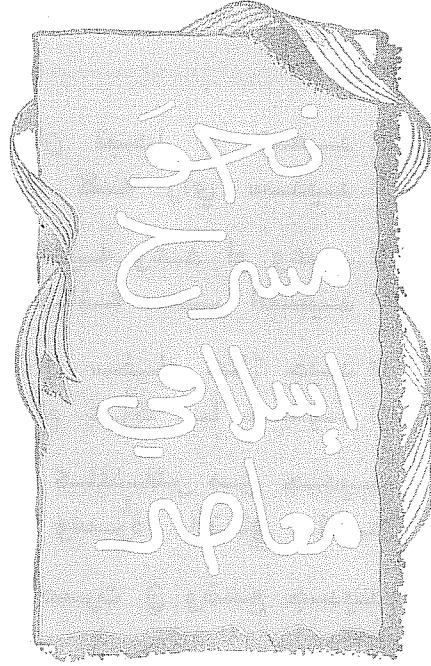 نحوَ
مسرح
إسلامي
معاصر